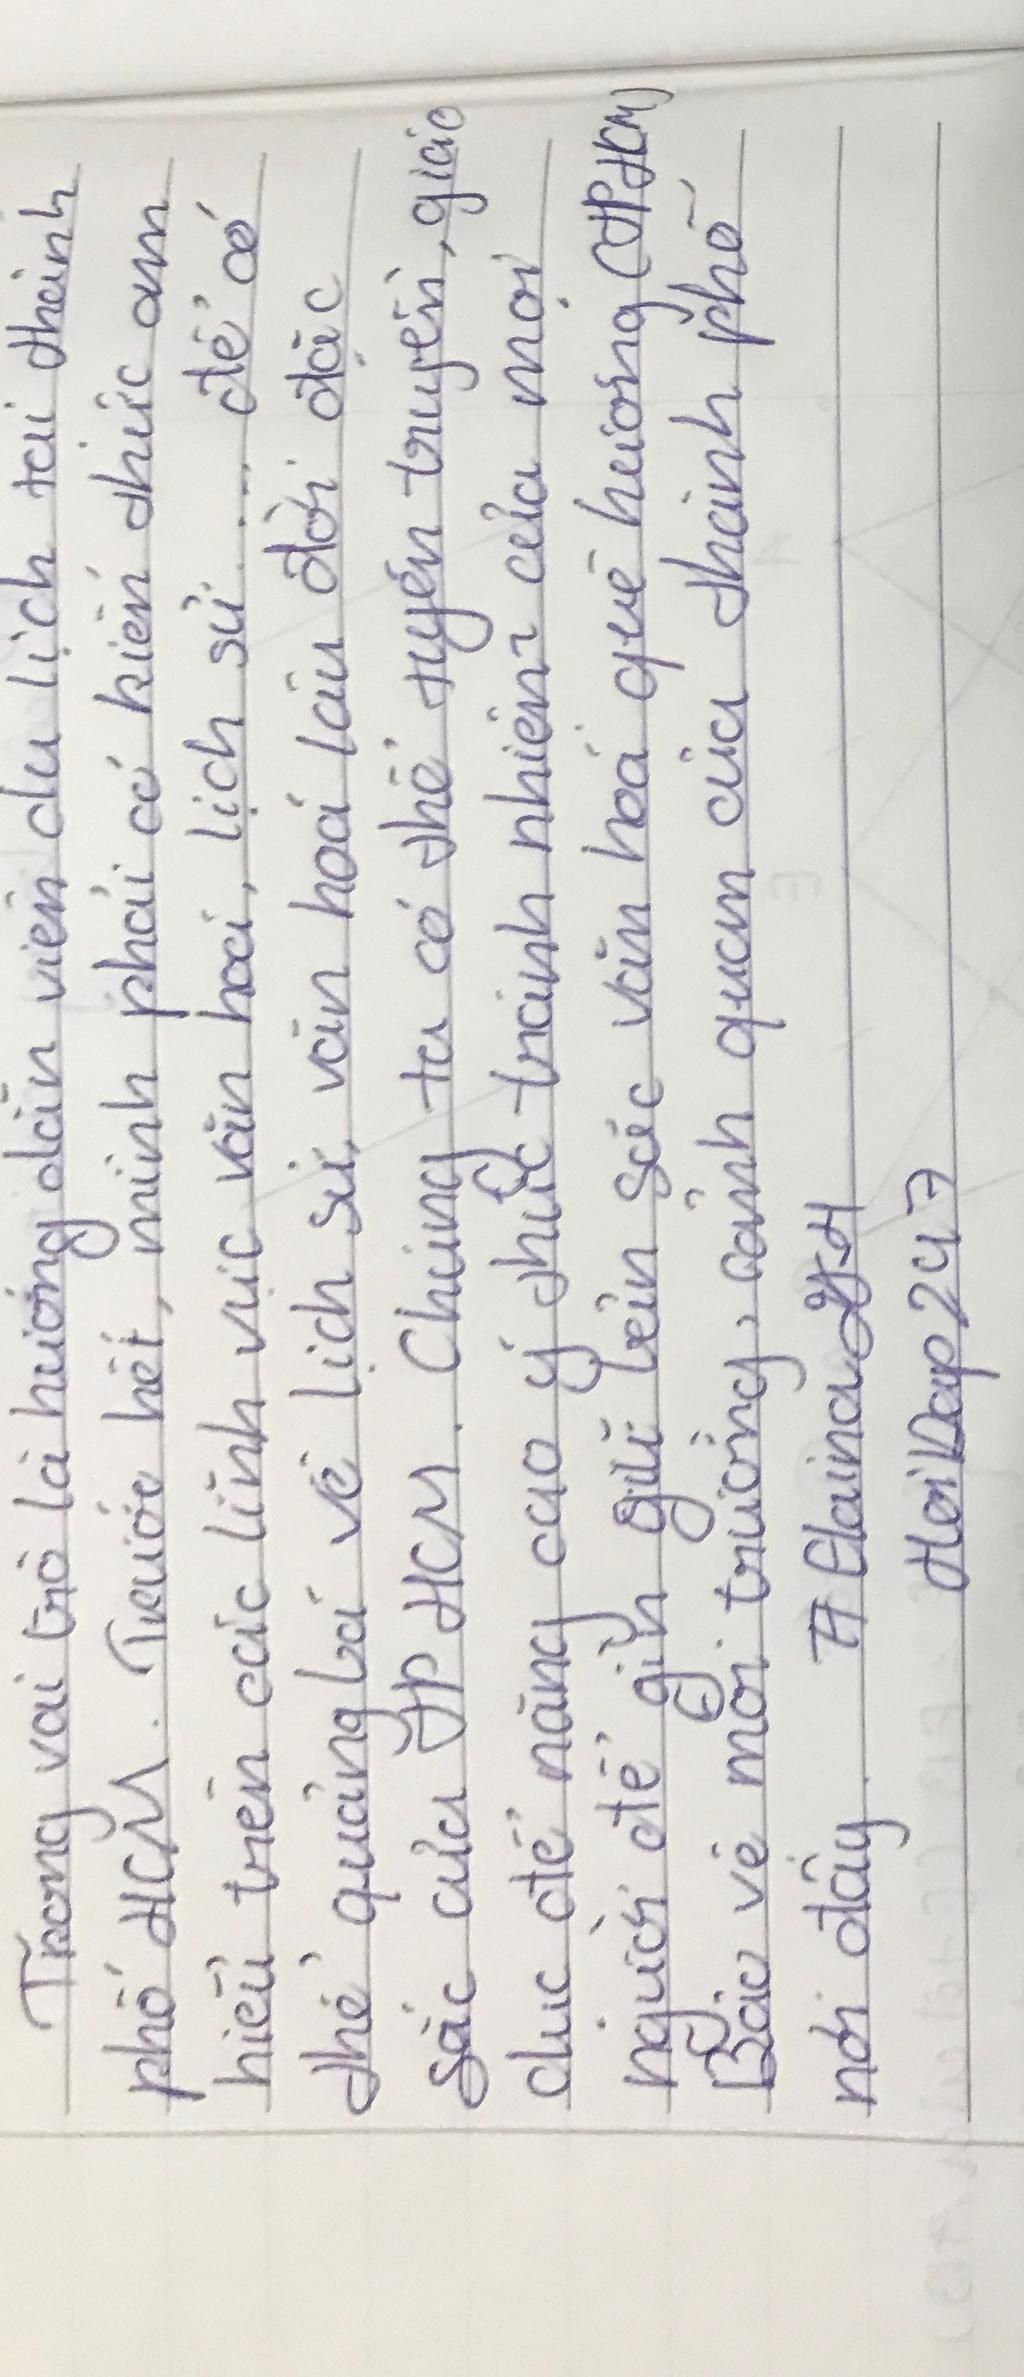 Trong vai trò là hướng dẫn viên du lịch tại thành
phố HCM. Trước hết, mình phải có kiến thức am
hiểu trên các lĩnh vực văn hoá, lịch sử .... để có
thể quảng bá về lịch sử, văn hoá lâu đời đặc
sắc của TP HCM. Chúng ta có thể tuyên truyền, giáo
dục để nâng cao ý thức trách nhiệm của mọi
người để gìn giữ bản sắc văn hoá quê hương (TP HCM)
Bảo vệ môi trường, cảnh quan của thành phố
nơi đây.
# Elaina
HoiDap247